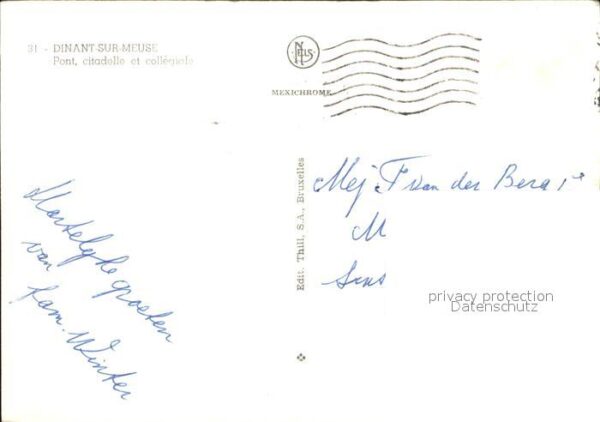 31 - DINANT-SUR-MEUSE
Pont, citadelle et collégiale
NELS
MEXICHROME
Edit. Thill, S.A., Bruxelles
Hartelijke groeten
van
fam. Winter
Mej F van der Berg
M
privacy protection
Datenschutz